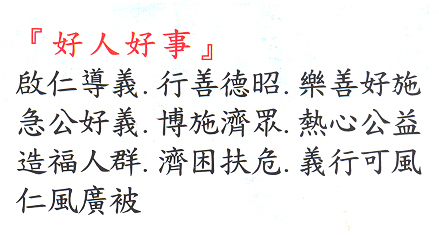 『好人好事』
啟仁導義.行善德昭.樂善好施
急公好義.博施濟眾.熱心公益
造福人群.濟困扶危.義行可風
仁風廣被